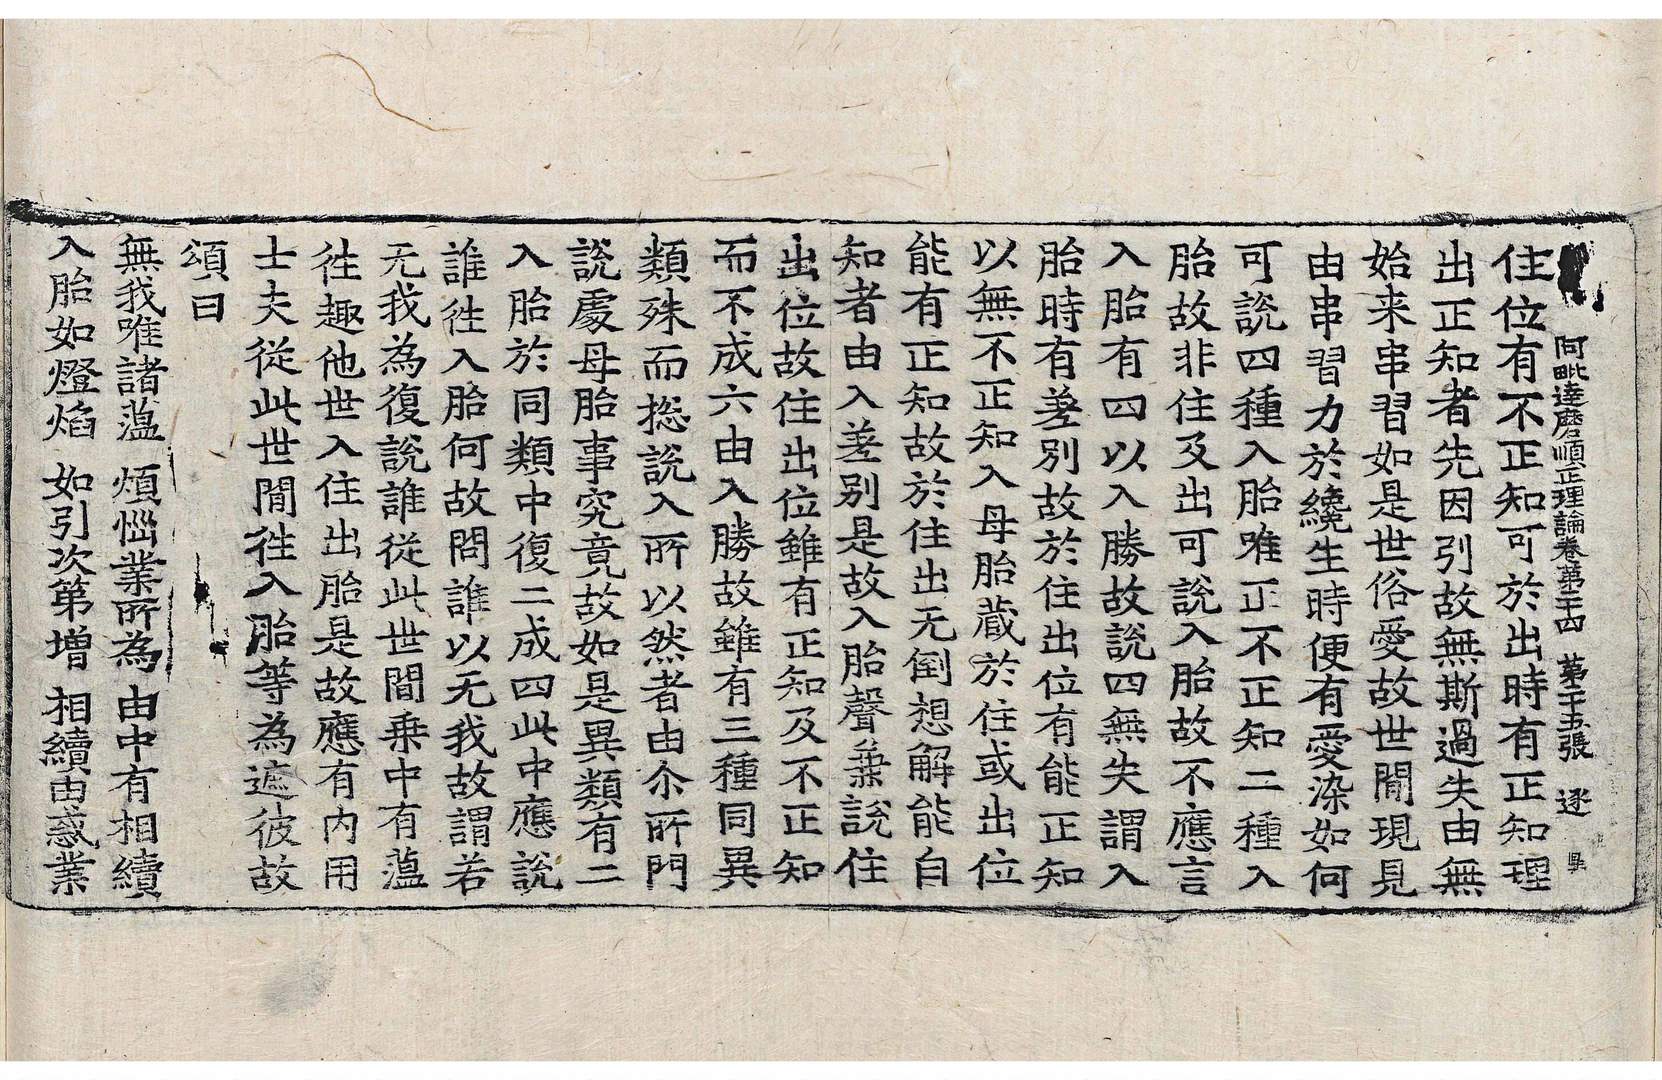 阿毗達磨順正理論卷第二十四 第二十五張 逐
住位有不正知可於出時有正知理
出正知者先因引故無斯過失由無
始来串習如是世俗愛故世間現見
由串習力於繞生時便有愛染如何
可說四種入胎唯正不正知二種入
胎故非住及出可說入胎故不應言
入胎有四以入勝故說四無失謂入
胎時有差別故於住出位有能正知
以無不正知入母胎藏於住或出位
能有正知故於住出无倒想解能自
知者由入差別是故入胎聲兼說住
出位故住出位雖有正知及不正知
而不成六由入勝故雖有三種同異
類殊而揔說入所以然者由尒所門
說處母胎事究竟故如是異類有二
入胎於同類中復二成四此中應說
誰徃入胎何故問誰以无我故謂若
无我為復說誰從此世間乗中有蕰
徃趣他世入住出胎是故應有內用
士夫從此世間徃入胎等為遮彼故
頌曰
無我唯諸蕰 煩惱業所為 由中有相續
入胎如燈焰 如引次第增 相續由惑業